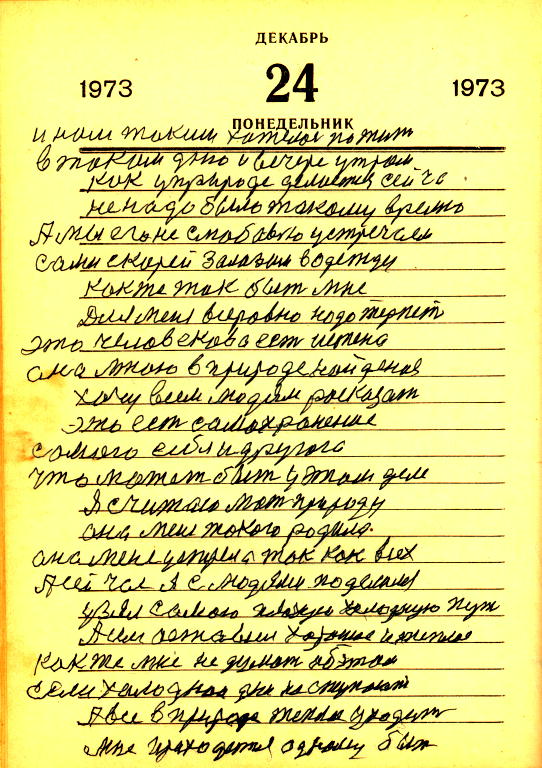 ДЕКАБРЬ
1973 24 1973
ПОНЕДЕЛЬНИК
и нам таким хателос пожит
в таком дню и вечере утром
как у природе делается сейчас
не надо было такому время
А мы его не с любовю устречаем
сами скорей залазим в одежду
как же так быт мне
Для меня всеровно надо терпет
это человекова ест истена
она мною в природе найденая
хочу всем людям расказат
это ест самохранение
самого себя и другога
что может быт у этом деле
Я считаю мат природу
она меня такого родила
она меня устрела так как всех
А сейчас я с людями поделился
узял самою плохую холодную пут
А им оставил хорошое и теплое
как же мне не думат об этом
если халодная дни наступают
А все в природе теплое уходит
мне приходется одному быт